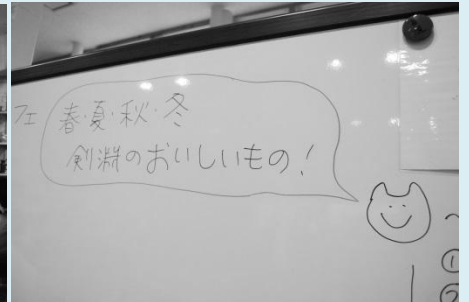 フェ
春・夏・秋・冬
剣淵のおいしいもの！
①
②